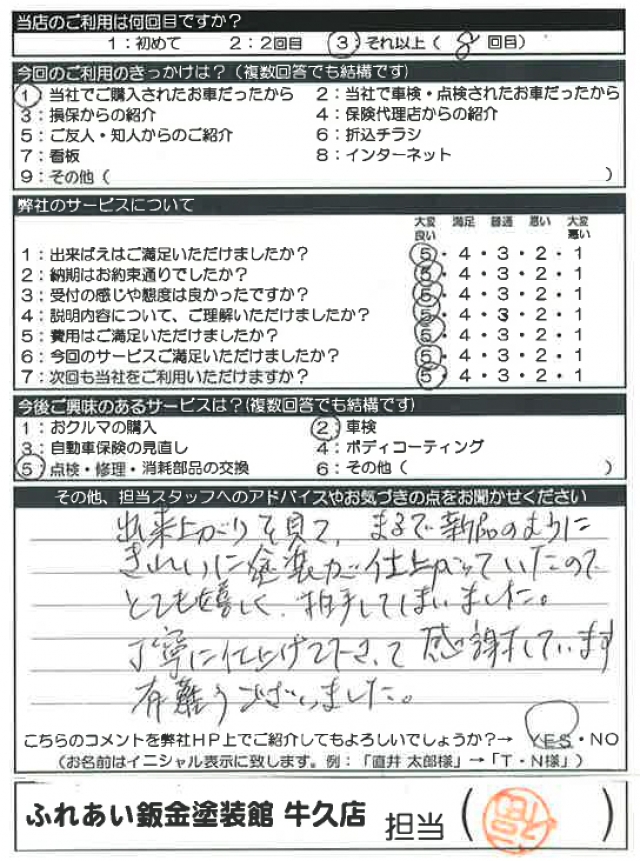 当店のご利用は何回目ですか？
1：初めて 2：2回目 3：それ以上（ 8 回目）
今回のご利用のきっかけは？（複数回答でも結構です）
1：当社でご購入されたお車だったから 2：当社で車検・点検されたお車だったから
3：損保からの紹介 4：保険代理店からの紹介
5：ご友人・知人からのご紹介 6：折込チラシ
7：看板 8：インターネット
9：その他（ ）
弊社のサービスについて
大変良い 満足 普通 悪い 大変悪い
1：出来ばえはご満足いただけましたか？ 5・4・3・2・1
2：納期はお約束通りでしたか？ 5・4・3・2・1
3：受付の感じや態度は良かったですか？ 5・4・3・2・1
4：説明内容について、ご理解いただけましたか？ 5・4・3・2・1
5：費用はご満足いただけましたか？ 5・4・3・2・1
6：今回のサービスご満足いただけましたか？ 5・4・3・2・1
7：次回も当社をご利用いただけますか？ 5・4・3・2・1
今後ご興味のあるサービスは？（複数回答でも結構です）
1：おクルマの購入 2：車検
3：自動車保険の見直し 4：ボディコーティング
5：点検・修理・消耗部品の交換 6：その他（ ）
その他、担当スタッフへのアドバイスやお気づきの点をお聞かせください
出来上がりを見て、まるで新品のように
きれいに塗装が仕上がっていたので
とても嬉しく、拍手してしまいました。
丁寧に仕上げて下さって感謝しています
有難うございました。
こちらのコメントを弊社HP上でご紹介してもよろしいでしょうか？→ YES・NO
（お名前はイニシャル表示に致します。例：「直井 太郎様」→「T・N様」）
ふれあい鈑金塗装館 牛久店 担当（ ）